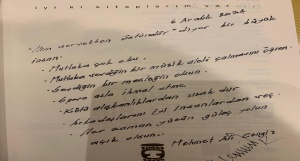 iyi ki kitaplarım var
6 Aralık 2024
- "İlim servetten üstündür" diyor bir büyük
insan.
- Mutlaka çok oku.
- Mutlaka sevdiğin bir müzik aleti çalmasını öğren.
- Sevdiğin bir mesleğin olsun.
- Sporu asla ihmal etme.
- Kötü alışkanlıklardan uzak dur
- Arkadaşlarını iyi insanlardan seç.
- Her zaman yüzün güleç yolun
açık olsun.
Mehmet Ali Cengiz